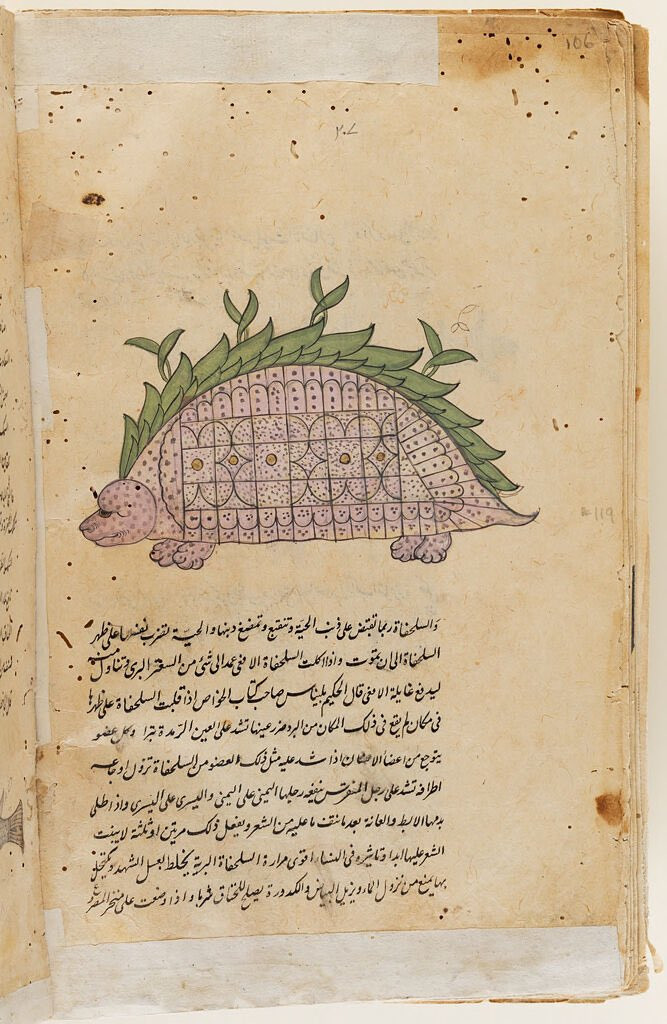 106
٢٠٧
والسلحفاة ربما تقبض على ذنب الحية وتمضغ ذنبها والحية تضرب نفسها على ظهر
السلحفاة الى ان يموت واذا اكلت السلحفاة الافعى عمد الى شئ من السعتر البرى وتناول منه
ليدفع غايلة الافعى قال الحكيم بليناس صاحب كتاب الخواص اذا قلبت السلحفاة على ظهرها
فى مكان لم يقع فى ذلك المكان من البرد ضرر عينها تشد على العين الرمدة تبرا وكل عضو
يتوجع من اعضا الانسان اذا شد عليه مثل ذلك العضو من السلحفاة تزول اوجاعه
اطرافه تشد على رجل المنقرس ينفعه رجلها اليمنى على اليمنى واليسرى على اليسرى واذا طلى
بدمها الابط والعانة بعد ما نتف ما عليه من الشعر ويفعل ذلك مرتين او ثلثة لا ينبت
الشعر عليها ابدا وتاثيره فى النساء اقوى مرارة السلحفاة البرية يخلط بعسل الشهد ويكتحل
بها يمنع من نزول الماء ويزيل البياض والكدورة يصلح للخناق شربا واذا وضعت على منخر المصروع
119